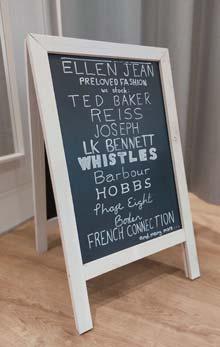 ELLEN JEAN
PRELOVED FASHION
we stock:
TED BAKER
REISS
JOSEPH
LK BENNETT
WHISTLES
Barbour
HOBBS
Phase Eight
Boden
FRENCH CONNECTION
and many more...